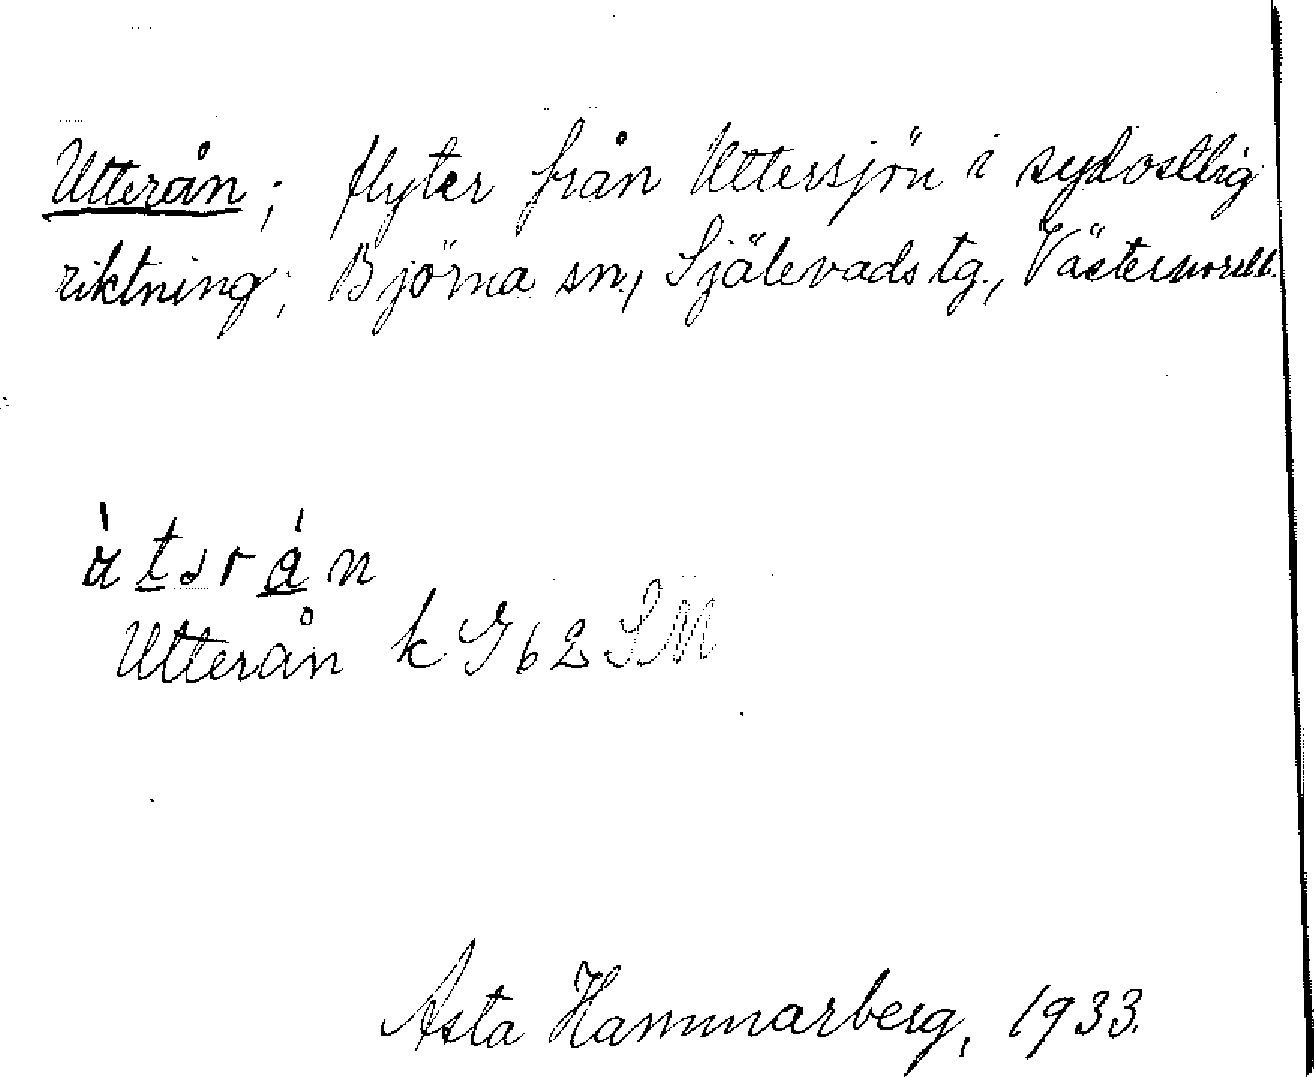 Utterån; flyter från Uttersjön i sydostlig
riktning; Björna sn, Själevads tg., Västernorrl l.
ùtərán
Utterån k I 62 SM
Asta Hammarberg, 1933.